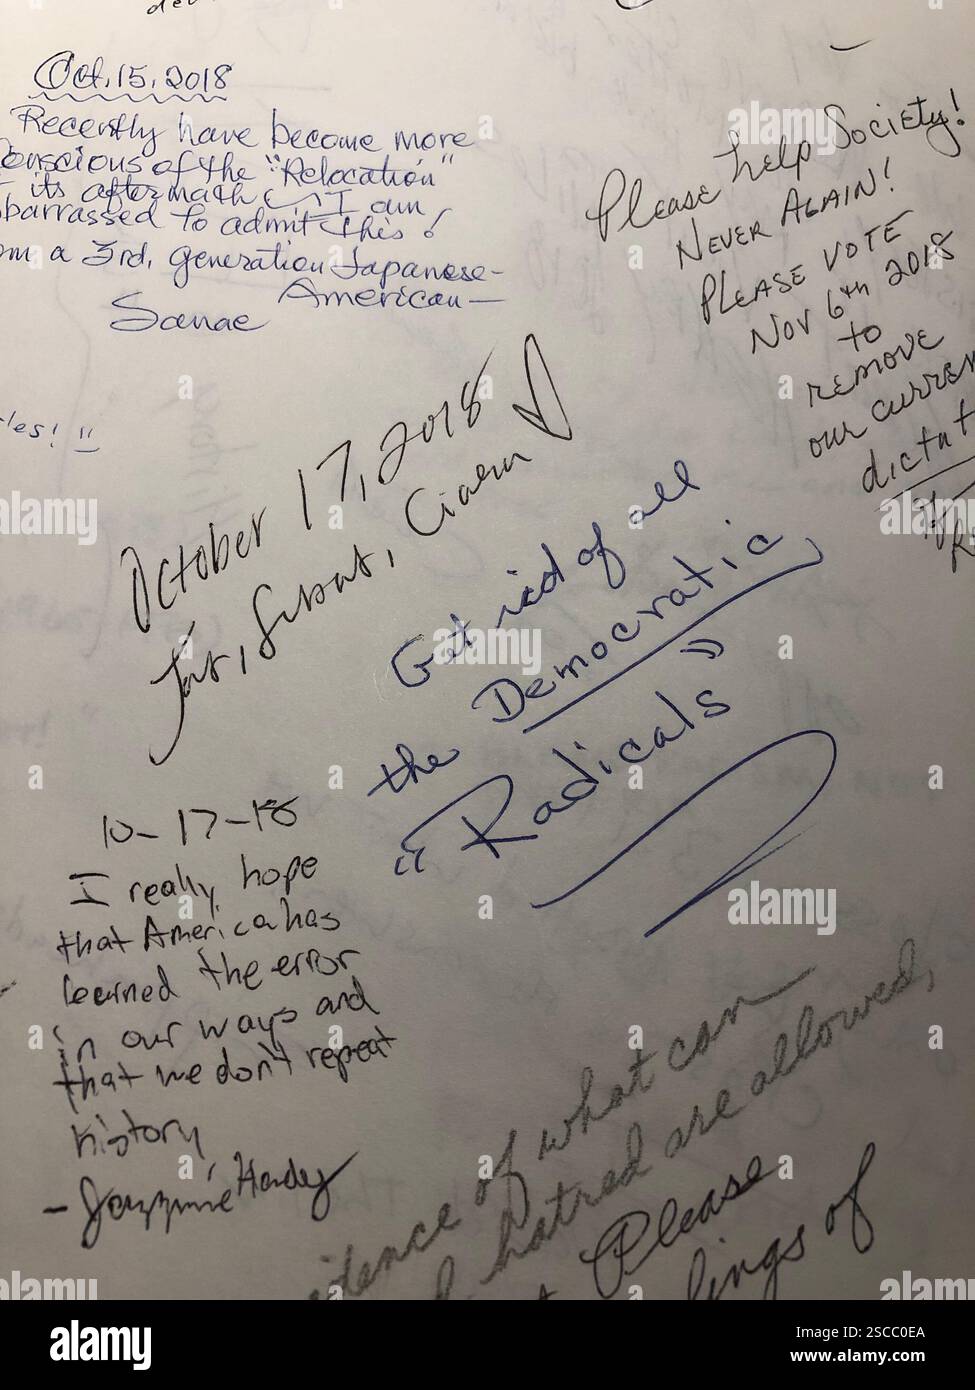 Oct. 15, 2018
Recently have become more
conscious of the "Relocation"
its aftermath I am
barrassed to admit this!
m a 3rd. generation Japanese-
American—
Sanae
Please help Society!
NEVER AGAIN!
PLEASE VOTE
NOV 6th 2018
to
remove
our curren
dictat
les!
October 17, 2018
Get rid of all
the Democratic
"Radicals"
10-17-18
I really hope
that America has
learned the error
in our ways and
that we don't repeat
history
idence of what can
hatred are allowed,
Please
lings of
alamy
Image ID: 2SCC0EA
www.alamy.com